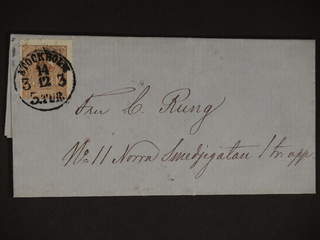 STOCKHOLM
14
3 12 3
5.TUR.
Fru C. Rung
No 11 Norra Smedjegatan 1 tr. upp